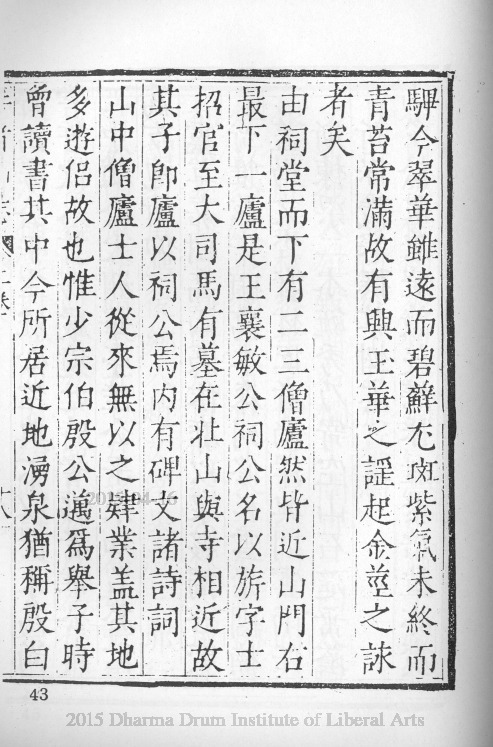 騨今翠華雖遠而碧鮮尢斑紫氣未終而
青苔常滿故有興玉華之謡起金莖之詠
者矣
由祠堂而下有二三僧廬然皆近山門右
最下一廬是王襄敏公祠公名以旂字士
招官至大司馬有墓在壯山與寺相近故
其子即廬以祠公焉内有碑文諸詩詞
山中僧廬士人從來無以之肄業盖其地
多遊侣故也惟少宗伯殷公邁爲舉子時
曾讀書其中今所居近地湧泉猶稱殷白
43
2015 Dharma Drum Institute of Liberal Arts